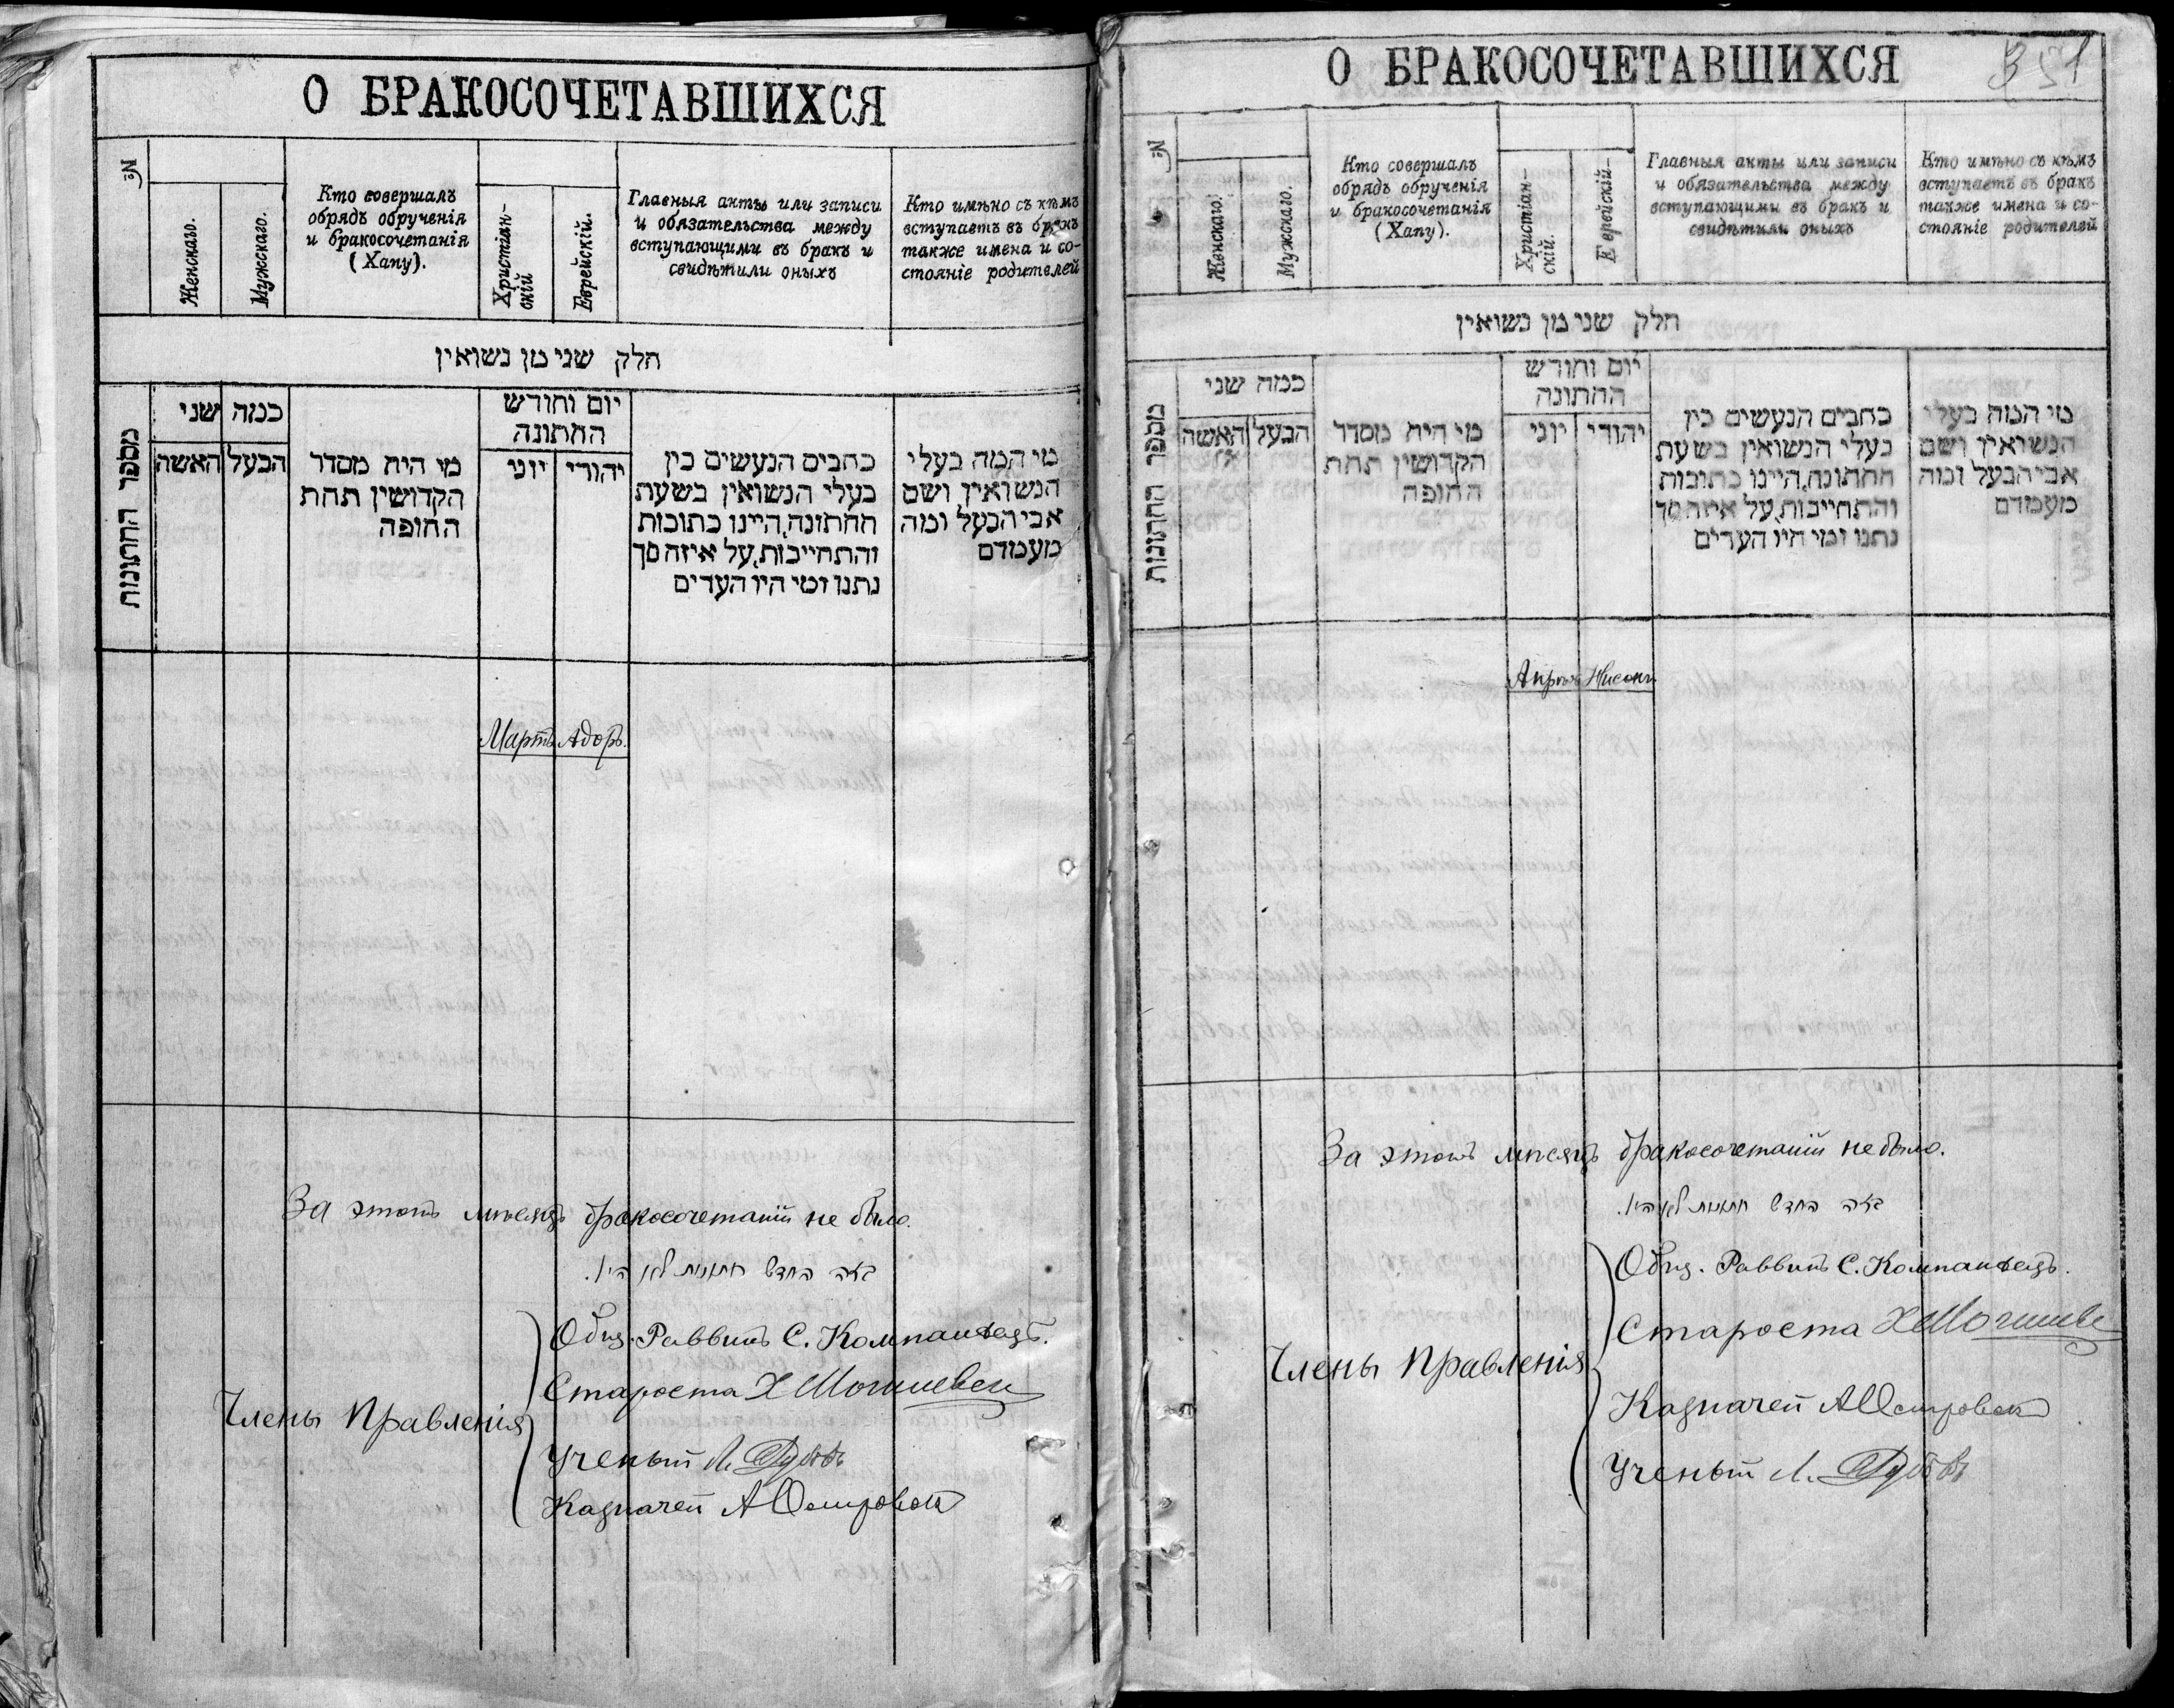 О БРАКОСОЧЕТАВШИХСЯ
№
Женскаго.
Мужскаго.
Кто совершалъ
обрядъ обрученія
и бракосочетанія
(Хапу).
Христіан-
скій
Еврейскій.
Главныя акты или записи
и обязательства между
вступающими въ бракъ и
свидѣтили оныхъ
Кто имѣно съ кѣмъ
вступаетъ въ бракъ
также имена и со-
стояніе родителей
חלק שני מן נשואין
מספר החתונות
כמה שני
האשה
הבעל
מי היה מסדר
הקדושין תחת
החופה
יום וחודש
החתונה
יוני
יהודי
כתבים הנעשים בין
בעלי הנשואין בשעת
החתונה, היינו כתובות
והתחייבות, על איזה סך
נתנו ומי היו העדים
מי המה בעלי
הנשואין ושם
אבי הבעל ומה
מעמדם
Мартъ Адоръ.
За этотъ мѣсяцъ бракосочетаній не было.
בזה החדש חתונות לא היו.
Члены Правленія
Общ. Раввинъ С. Компанѣецъ.
Староста Х
Ученый Л.
Казначей А
О БРАКОСОЧЕТАВШИХСЯ
351
№
Женскаго.
Мужскаго.
Кто совершалъ
обрядъ обрученія
и бракосочетанія
(Хапу).
Христіан-
скій.
Еврейскій-
Главныя акты или записи
и обязательства между
вступающими въ бракъ и
свидѣтили оныхъ
Кто имѣно съ кѣмъ
вступаетъ въ бракъ
также имена и со-
стояніе родителей
חלק שני מן נשואין
מספר החתונות
כמה שני
האשה
הבעל
מי היה מסדר
הקדושין תחת
החופה
יום וחודש
החתונה
יוני
יהודי
כתבים הנעשים בין
בעלי הנשואין בשעת
החתונה, היינו כתובות
והתחייבות, על איזה סך
נתנו ומי היו העדים
מי המה בעלי
הנשואין ושם
אבי הבעל ומה
מעמדם
Апрѣль Нисонъ
За этотъ мѣсяцъ бракосочетаній не было.
בזה החדש חתונות לא היו.
Члены Правленія
Общ. Раввинъ С. Компанѣецъ.
Староста Х
Казначей А
Ученый Л.